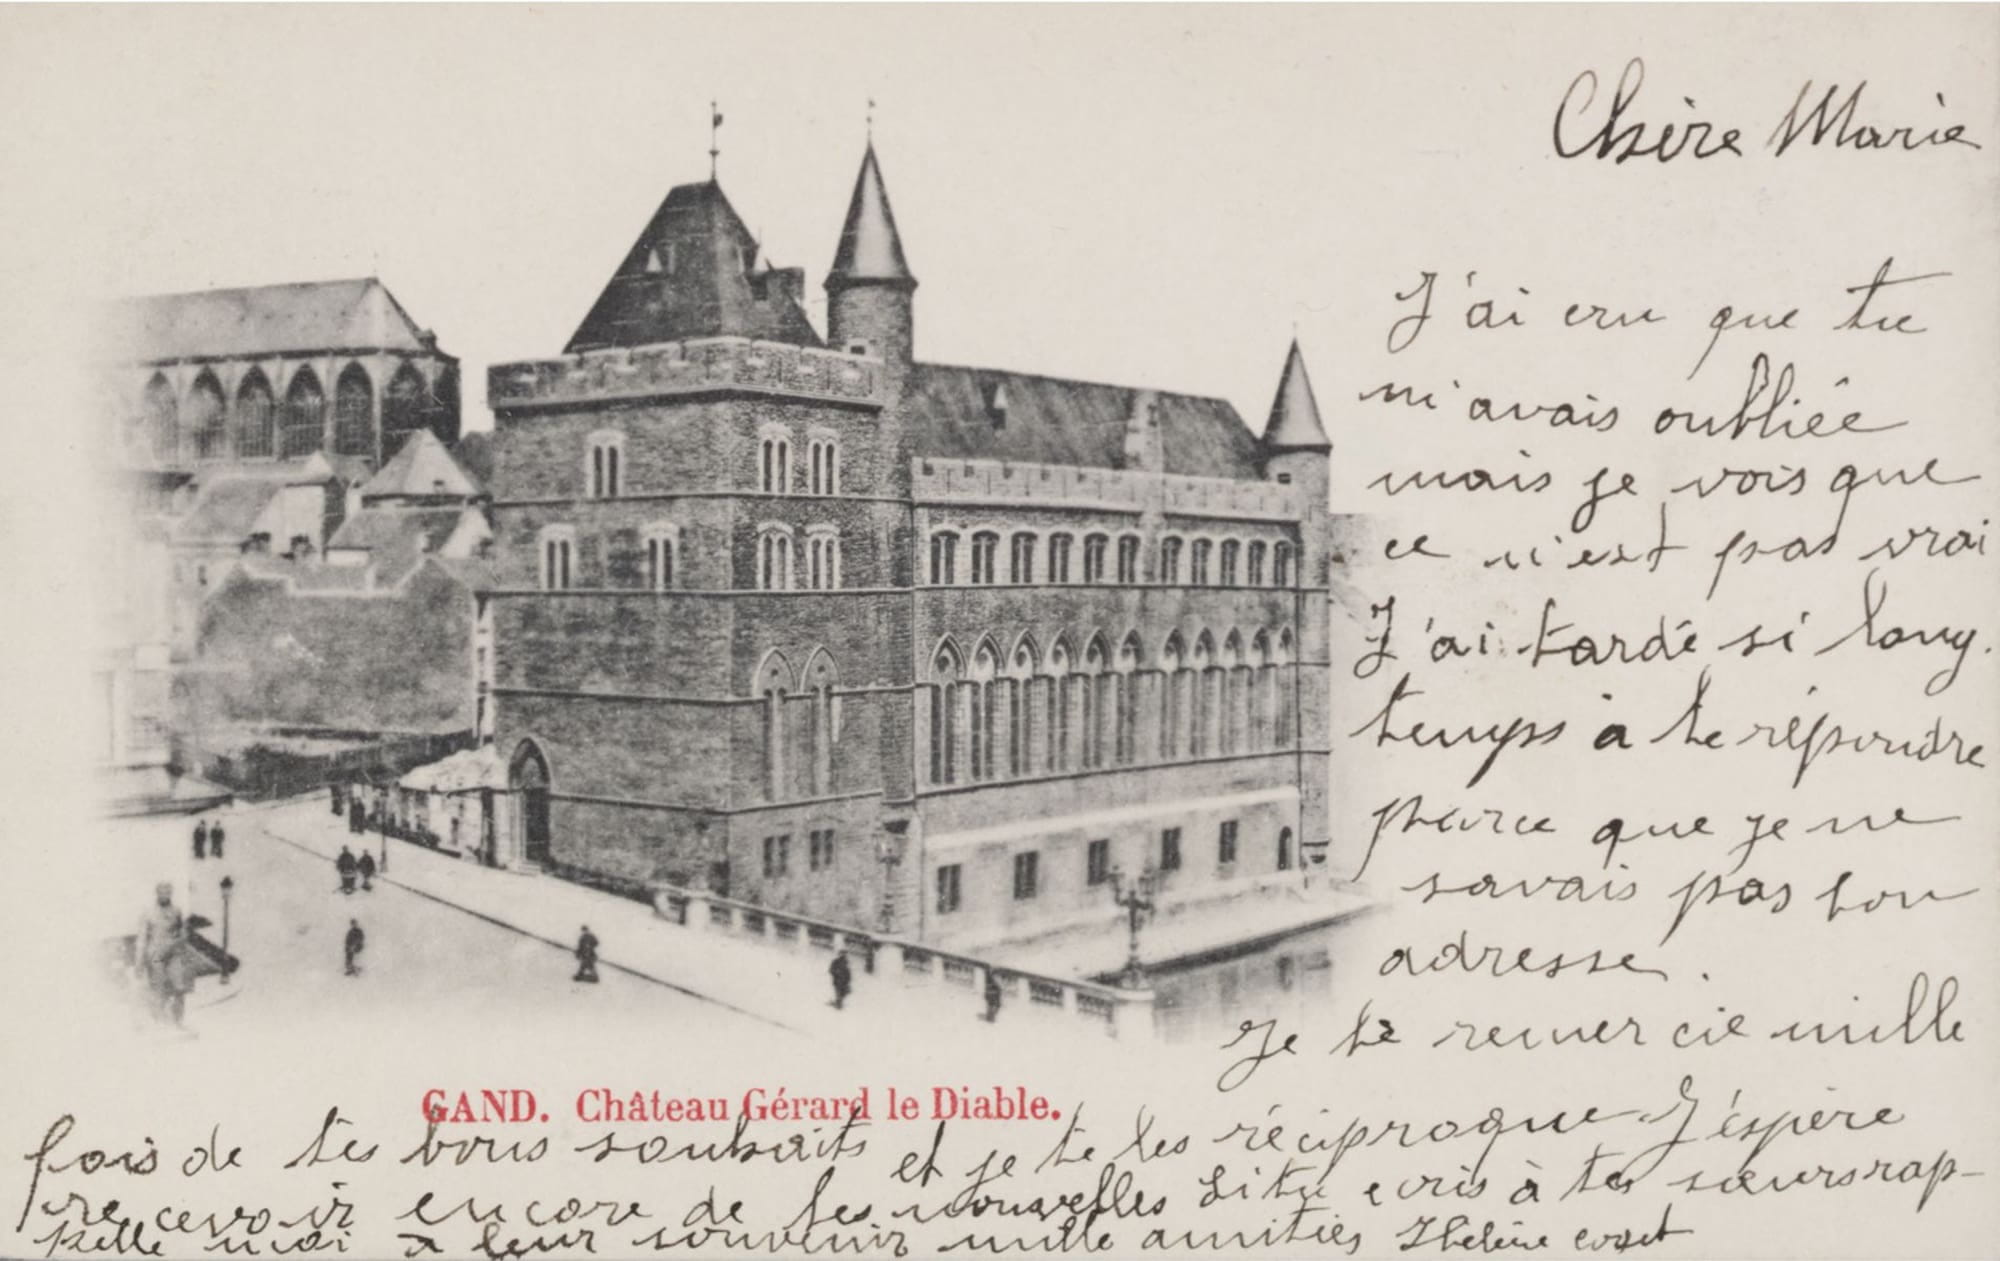 Chère Marie
J'ai cru que tu
m'avais oubliée
mais je vois que
ce n'est pas vrai
J'ai tardé si long.
temps à te répondre
parce que je ne
savais pas ton
adresse.
Je te remercie mille
GAND. Château Gérard le Diable.
fois de tes bons souhaits et je te les réciproque J'éspère
recevoir encore de tes nouvelles Si tu ecris à tes sœurs rap-
pelle moi a leur souvenir mille amitiés Hélène